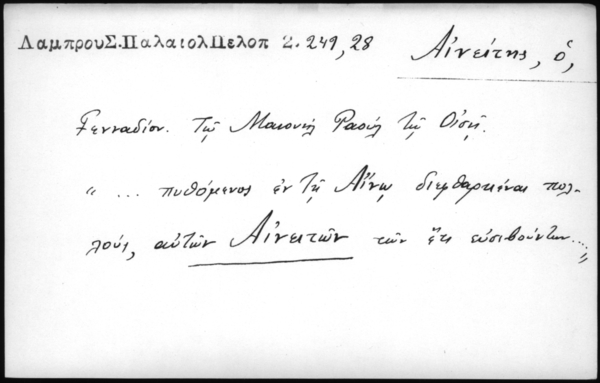 ΛαμπρουΣ.ΠαλαιολΠελοπ 2. 249, 28 Αἰνείτης, ὁ,
Γενναδίου. Τῷ Μανουὴλ Ῥαοὺλ τῷ Οἰσῇ.
" ... πυθόμενος ἐν τῇ Αἴνῳ διεφθαρκέναι πολ-
λούς, αὐτῶν Αἰνειτῶν τῶν ἔτι εὐσεβούντων...."